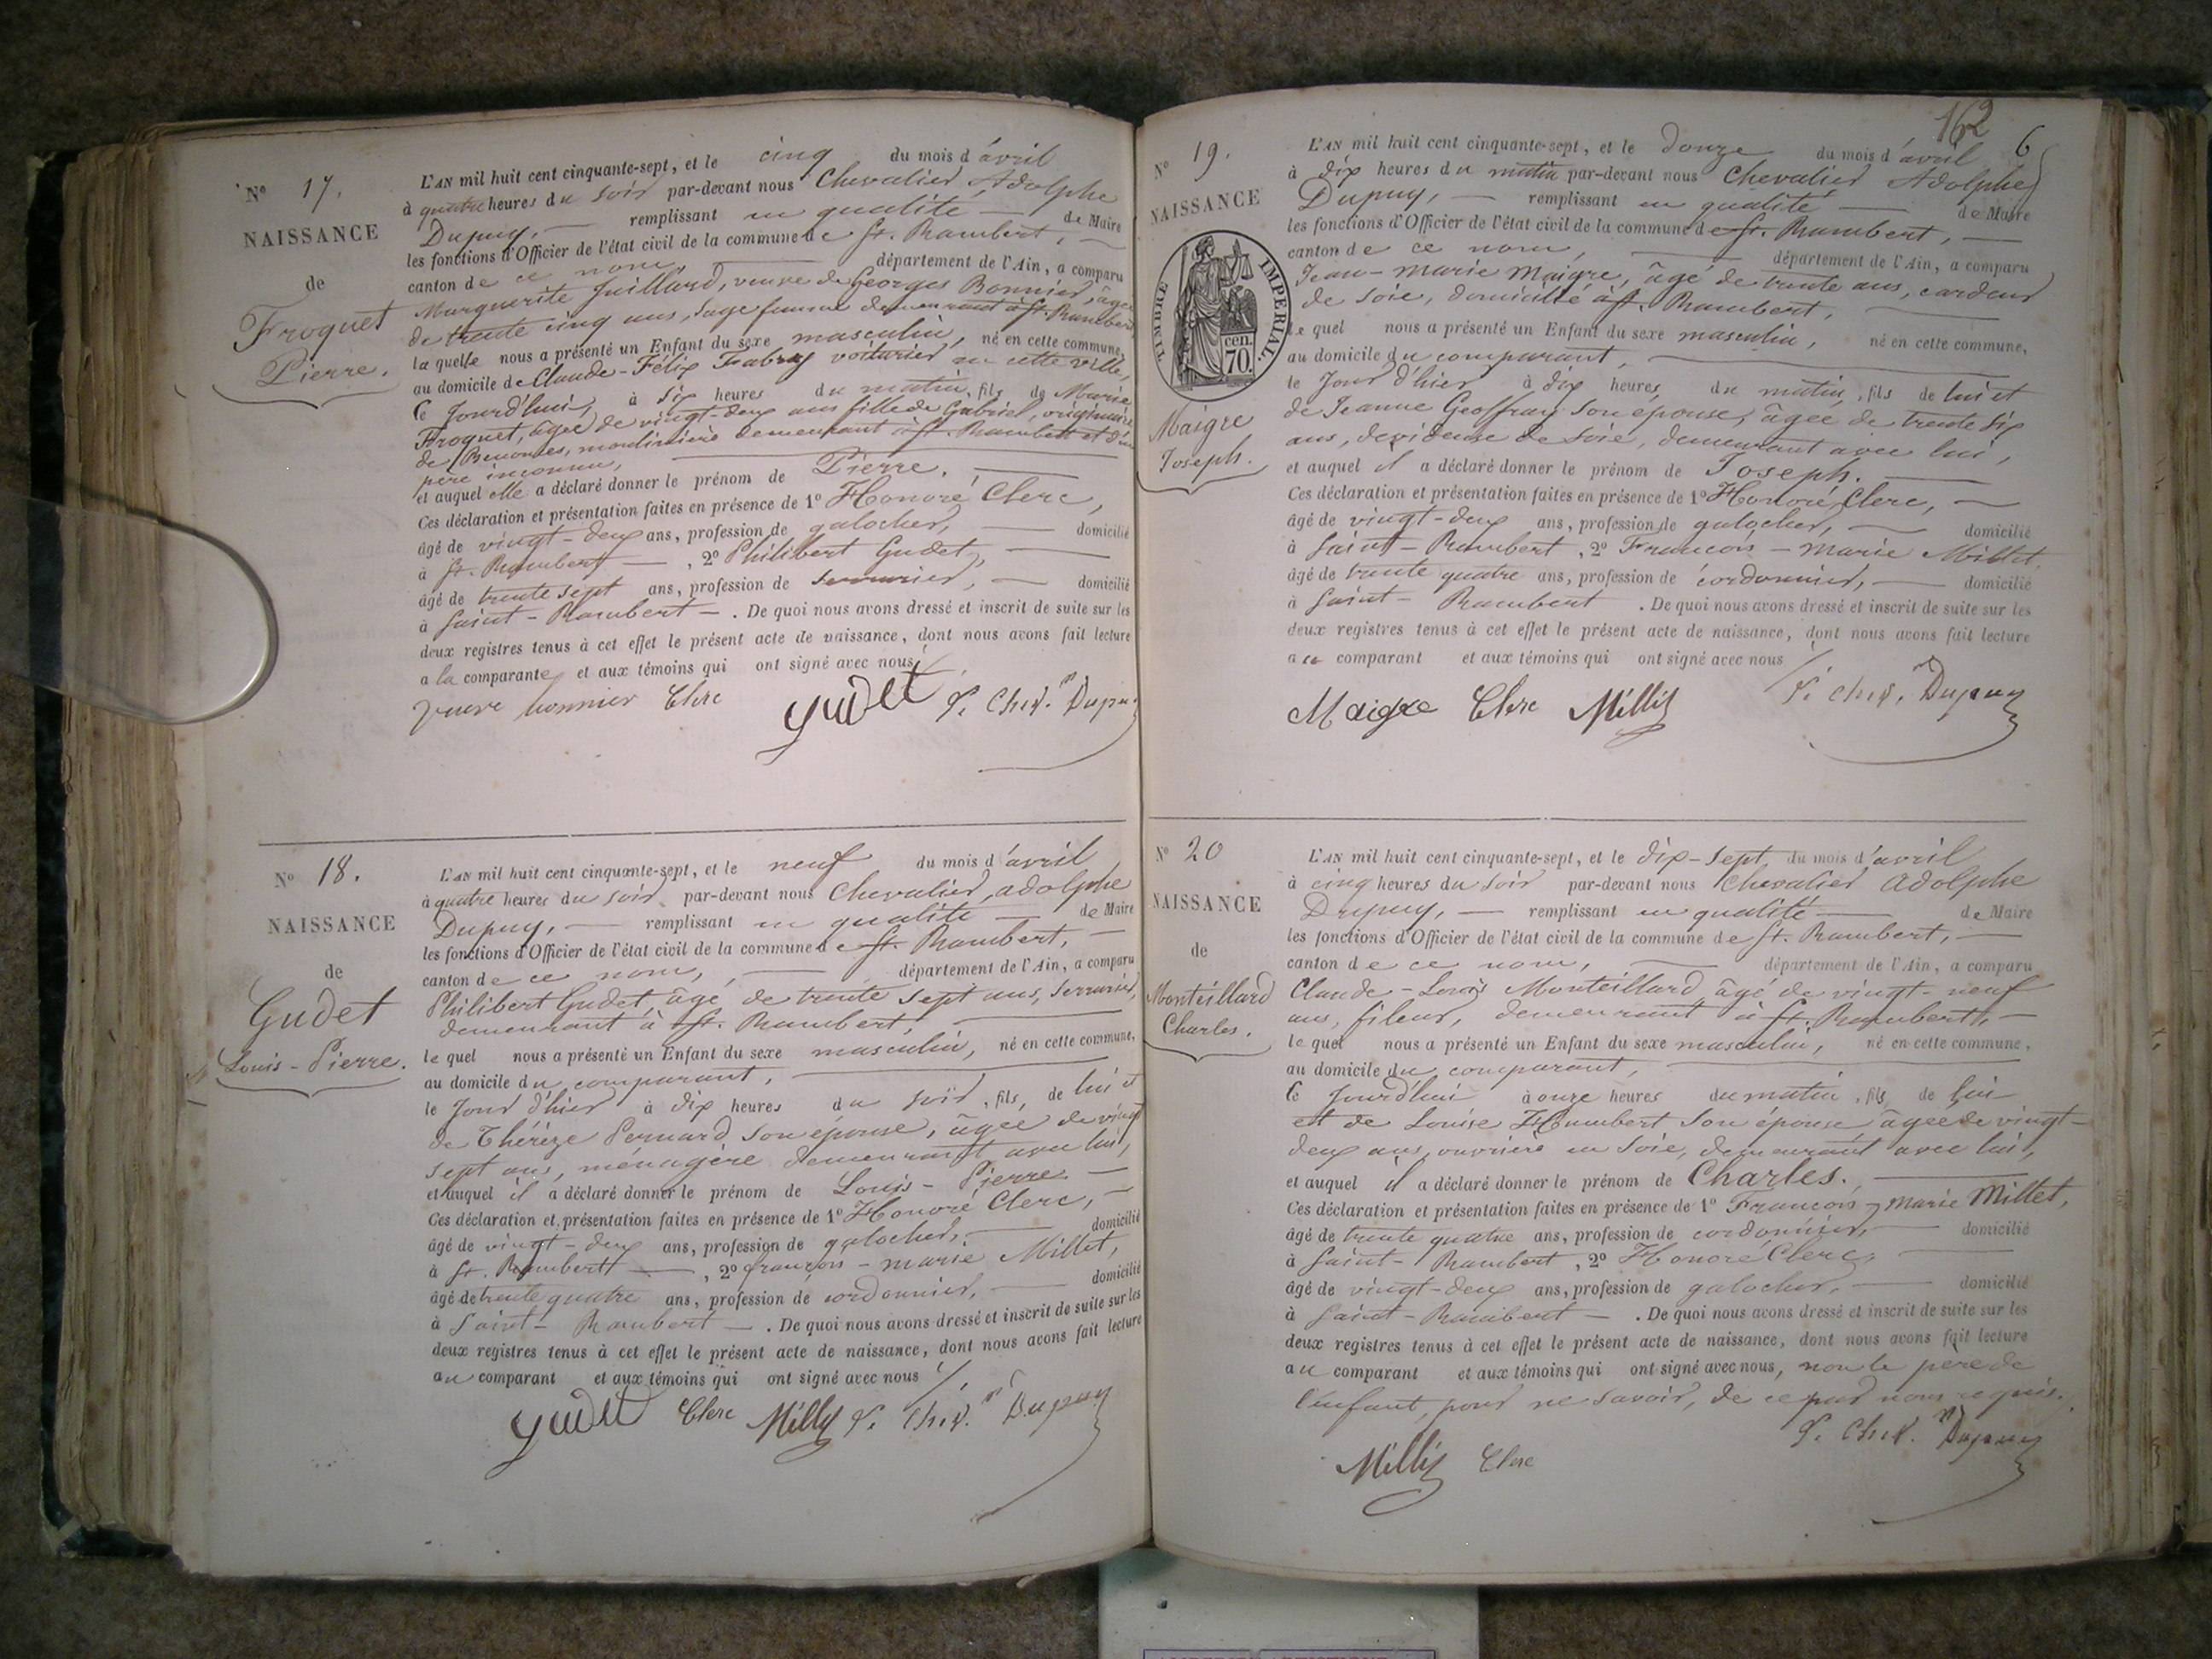 N° 17.
NAISSANCE
de
Froquet
Pierre.
L'AN mil huit cent cinquante-sept, et le cinq du mois d'avril
à quatre heures du soir par-devant nous Chevalier Adolphe
Dupuy, — remplissant en qualité — de Maire
les fonctions d'Officier de l'état civil de la commune de St. Rambert, —
canton de ce nom, — département de l'Ain, a comparu
Marguerite Juillard, veuve de Georges Bonnier, âgée
de trente cinq ans, sage femme demeurant à St. Rambert
la quelle nous a présenté un Enfant du sexe masculin, né en cette commune,
au domicile de Claude-Félix Fabry voiturier en cette ville,
ce Jourd'hui, à six heures du matin, fils de Marie
Froquet, âgée de vingt-deux ans fille de Gabriel, originaire
de moulinière demeurant à St. Rambert et d'un
père inconnu,
et auquel elle a déclaré donner le prénom de Pierre. —
Ces déclaration et présentation faites en présence de 1° Honoré Clerc,
âgé de vingt-deux ans, profession de galocher, — domicilié
à St. Rambert —, 2° Philibert Gudet, —
âgé de trente sept ans, profession de serrurier, — domicilié
à Saint-Rambert —. De quoi nous avons dressé et inscrit de suite sur les
deux registres tenus à cet effet le présent acte de naissance, dont nous avons fait lecture
a la comparante et aux témoins qui ont signé avec nous
veuve bonnier Clerc Gudet Chev. Dupuy
N° 18.
NAISSANCE
de
Gudet
Louis-Pierre.
L'AN mil huit cent cinquante-sept, et le neuf du mois d'avril
à quatre heures du soir par-devant nous Chevalier, adolphe
Dupuy, — remplissant en qualité — de Maire
les fonctions d'Officier de l'état civil de la commune de St. Rambert, —
canton de ce nom, — département de l'Ain, a comparu
Philibert Gudet, âgé de trente sept ans, serrurier,
demeurant à St. Rambert, —
le quel nous a présenté un Enfant du sexe masculin, né en cette commune,
au domicile du comparant, —
le Jour d'hier à dix heures du soir, fils, de lui et
de Thérèze Pernard, son épouse, âgée de vingt
sept ans, ménagère demeurant avec lui,
et auquel il a déclaré donner le prénom de Louis-Pierre —
Ces déclaration et présentation faites en présence de 1° Honoré Clerc, —
âgé de vingt-deux ans, profession de galocher, — domicilié
à St. Rambert —, 2° françois-marie Millet,
âgé de trente quatre ans, profession de cordonnier, — domicilié
à Saint-Rambert —. De quoi nous avons dressé et inscrit de suite sur les
deux registres tenus à cet effet le présent acte de naissance, dont nous avons fait lecture
au comparant et aux témoins qui ont signé avec nous
Gudet Clerc Millet Chev. Dupuy
162
6
N° 19.
NAISSANCE
TIMBRE IMPERIAL.
70. cen.
Maigre
Joseph.
L'AN mil huit cent cinquante-sept, et le douze du mois d'avril
à dix heures du matin par-devant nous Chevalier Adolphe
Dupuy, — remplissant en qualité — de Maire
les fonctions d'Officier de l'état civil de la commune de St. Rambert, —
canton de ce nom, — département de l'Ain, a comparu
Jean-Marie Maigre, âgé de trente ans, cardeur
de soie, domicilié à St. Rambert, —
le quel nous a présenté un Enfant du sexe masculin, né en cette commune,
au domicile du comparant, —
le Jour d'hier à dix heures du matin, fils de lui et
de Jeanne Geoffray son épouse, âgée de trente six
ans, devideuse de soie, demeurant avec lui,
et auquel il a déclaré donner le prénom de Joseph. —
Ces déclaration et présentation faites en présence de 1° Honoré Clerc, —
âgé de vingt-deux ans, profession de galocher, — domicilié
à Saint-Rambert, 2° François-Marie Millet.
âgé de trente quatre ans, profession de cordonnier, — domicilié
à Saint-Rambert. De quoi nous avons dressé et inscrit de suite sur les
deux registres tenus à cet effet le présent acte de naissance, dont nous avons fait lecture
a ce comparant et aux témoins qui ont signé avec nous
Maigre Clerc Millet Chev. Dupuy
N° 20
NAISSANCE
de
Monteillard
Charles.
L'AN mil huit cent cinquante-sept, et le dix-sept du mois d'avril
à cinq heures du soir par-devant nous Chevalier Adolphe
Dupuy, — remplissant en qualité — de Maire
les fonctions d'Officier de l'état civil de la commune de St. Rambert, —
canton de ce nom, — département de l'Ain, a comparu
Claude-Louis Monteillard âgé de vingt-neuf
ans, fileur, demeurant à St. Rambert, —
le quel nous a présenté un Enfant du sexe masculin, né en cette commune,
au domicile du comparant, —
ce Jourd'hui à onze heures du matin, fils de lui
et de Louise Humbert son épouse âgée de vingt-
deux ans, ouvrière en soie, demeurant avec lui,
et auquel il a déclaré donner le prénom de Charles. —
Ces déclaration et présentation faites en présence de 1° François-Marie Millet,
âgé de trente quatre ans, profession de cordonnier, — domicilié
à Saint-Rambert, 2° Honoré Clerc, —
âgé de vingt-deux ans, profession de galocher, — domicilié
à Saint-Rambert —. De quoi nous avons dressé et inscrit de suite sur les
deux registres tenus à cet effet le présent acte de naissance, dont nous avons fait lecture
au comparant et aux témoins qui ont signé avec nous, non le père de
l'enfant, pour ne savoir, de ce par nous requis.
Chev. Dupuy
Millet Clerc